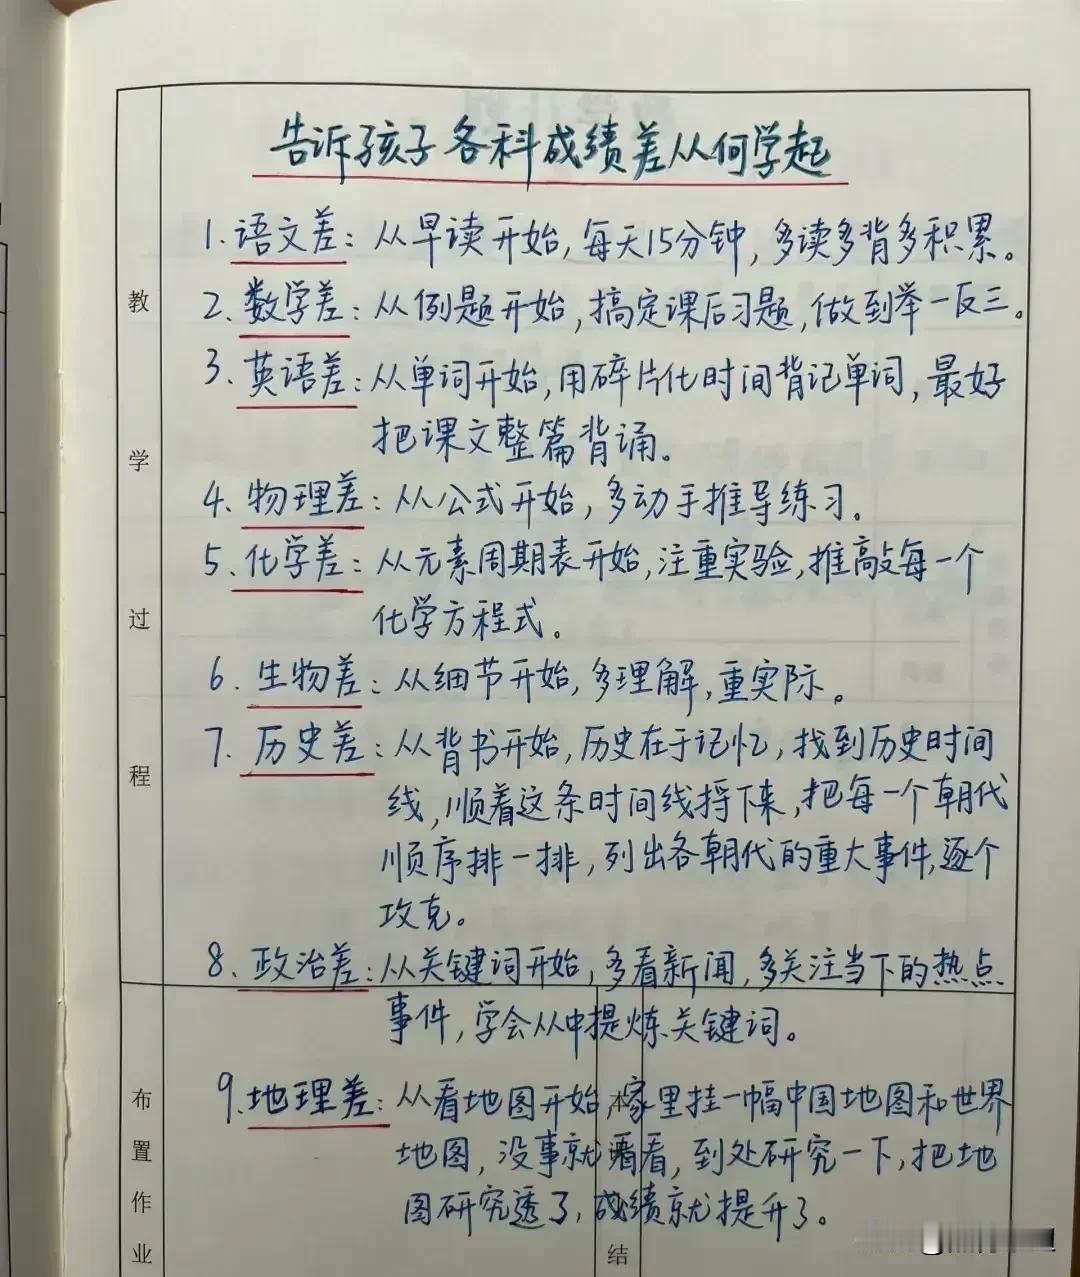 告诉孩子各科成绩差从何学起
1.语文差：从早读开始，每天15分钟，多读多背多积累。
2.数学差：从例题开始，搞定课后习题，做到举一反三。
3、英语差：从单词开始，用碎片化时间背记单词，最好
把课文整篇背诵。
4.物理差：从公式开始，多动手推导练习。
5、化学差：从元素周期表开始，注重实验，推敲每一个
化学方程式。
6.生物差：从细节开始，多理解，重实际。
7.历史差：从背书开始，历史在于记忆，找到历史时间
线，顺着这条时间线捋下来，把每一个朝代
顺序排一排，列出各朝代的重大事件，逐个
攻克。
8、政治差：从关键词开始，多看新闻，多关注当下的热点
事件，学会从中提炼关键词。
9.地理差：从看地图开始，家里挂一幅中国地图和世界
地图，没事就看看，到处研究一下，把地
图研究透了，成绩就提升了。
教
学
过
程
布
置
作
业
本
结